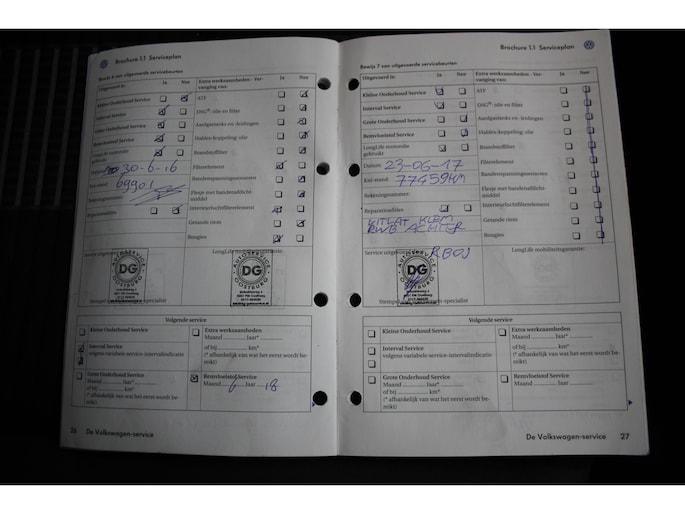 Brochure 1.1 Serviceplan
Bewijs 6 van uitgevoerde servicebeurten
Uitgevoerd in:
Ja
Nee
Extra werkzaamheden - Ver-
vanging van:
Ja
Nee
Kleine Onderhoud Service
ATF
Interval Service
DSG®-olie en filter
Grote Onderhoud Service
Aardgastanks en -leidingen
Remvloeistof Service
Haldex-koppeling: olie
LongLife motorolie
gebruikt
Brandstoffilter
30-6-16
Filterelement
Km-stand:
69901
Bandenspanningssensoren
Rekeningnummer:
Flesje met bandenafdicht-
middel
Reparatieadvies
Interieurluchtfilterelement
Getande riem
Bougies
Service uitgevoerd
LongLife mobiliteitsgarantie:
AUTOSERVICE
DG
OOSTBURG
Stempel
specialist
Volgende service
Kleine Onderhoud Service
Extra werkzaamheden
Maand ........ Jaar*
Interval Service
volgens variabele service-intervalindicatie
of bij ........ km*
(* afhankelijk van wat het eerst wordt be-
reikt)
Grote Onderhoud Service
Maand ........ Jaar*
of bij ........ km*
(* afhankelijk van wat het eerst wordt be-
reikt)
Remvloeistof Service
Maand 6 Jaar 18
26 De Volkswagen-service
Brochure 1.1 Serviceplan
Bewijs 7 van uitgevoerde servicebeurten
Uitgevoerd in:
Ja
Nee
Extra werkzaamheden - Ver-
vanging van:
Ja
Nee
Kleine Onderhoud Service
ATF
Interval Service
DSG®-olie en filter
Grote Onderhoud Service
Aardgastanks en -leidingen
Remvloeistof Service
Haldex-koppeling: olie
LongLife motorolie
gebruikt
Brandstoffilter
Datum: 23-06-17
Filterelement
Km-stand: 77459KM
Bandenspanningssensoren
Rekeningnummer:
Flesje met bandenafdicht-
middel
Reparatieadvies
Interieurluchtfilterelement
Getande riem
RWB ACHTER
Bougies
Service uitgevoerd
LongLife mobiliteitsgarantie:
AUTOSERVICE
DG
OOSTBURG
Stempel
specialist
Volgende service
Kleine Onderhoud Service
Extra werkzaamheden
Maand ........ Jaar*
Interval Service
volgens variabele service-intervalindicatie
of bij ........ km*
(* afhankelijk van wat het eerst wordt be-
reikt)
Grote Onderhoud Service
Maand ........ Jaar*
of bij ........ km*
(* afhankelijk van wat het eerst wordt be-
reikt)
Remvloeistof Service
Maand ........ Jaar ........
De Volkswagen-service 27